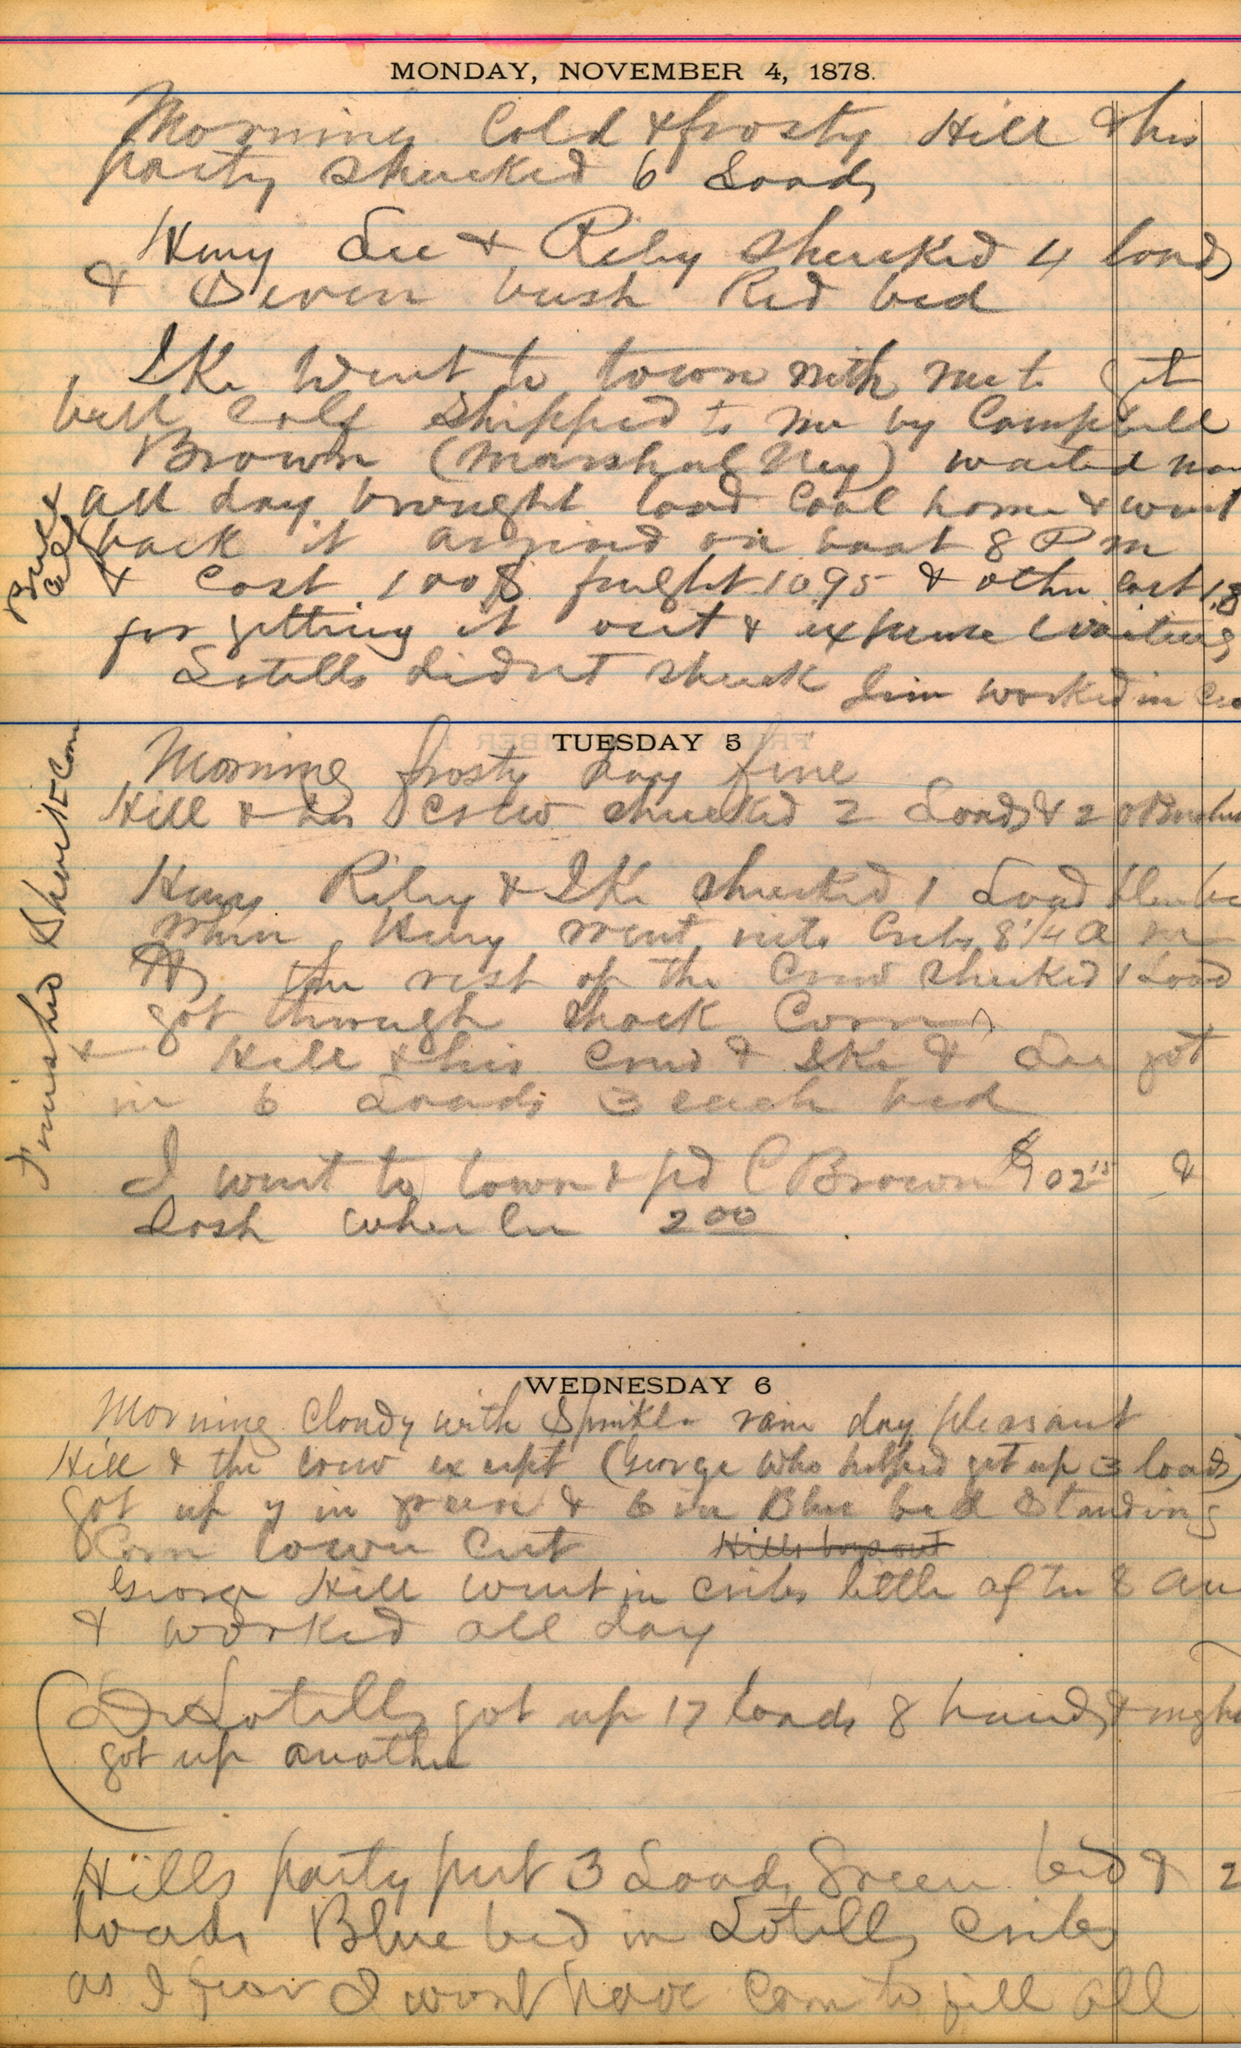 MONDAY, NOVEMBER 4, 1878.
Morning Cold & frosty Hill & his
party shucked 6 Loads
Henry Lee & Riley shucked 4 loads
& Seven bush Red bed
Ike went to town with me to get
bull Calf shipped to me by Campbell
Brown (Marshal Ney) waited
all day brought load Coal home & went
back it arrived on boat 8 P m
& Cost 100$ freight 10.95 & other cost 1.8
for getting it out & expense waiting
Lotells didnt shuck Jim worked in
Bull Calf
TUESDAY 5
Morning frosty day fine
Hill & his crew shucked 2 Loads & 20 Bushes
Henry Riley & Ike shucked 1 Load
when Henry went into Cribs 8 1/4 a m
the rest of the Crew shucked 1 Load
got through shock Corn
& Hill & his crew & Ike & Lee got
in 6 Loads 3 each bed
I went to town & pd C Brown $102
2 00
Finished Shock Corn
WEDNESDAY 6
Morning Cloudy with Sprinkle rain day pleasant
Hill & the crew except (George who helped get up 3 loads)
got up in & 6 in Blue bed Standing
Corn Cut Hills boys out
George Hill went in cribs little after 8 am
& worked all day
Lotells got up 17 loads 8 hands &
got up another
Hills party put 3 Loads Green bed & 2
loads Blue bed in Lotells Cribs
as I fear I wont have Corn to fill all